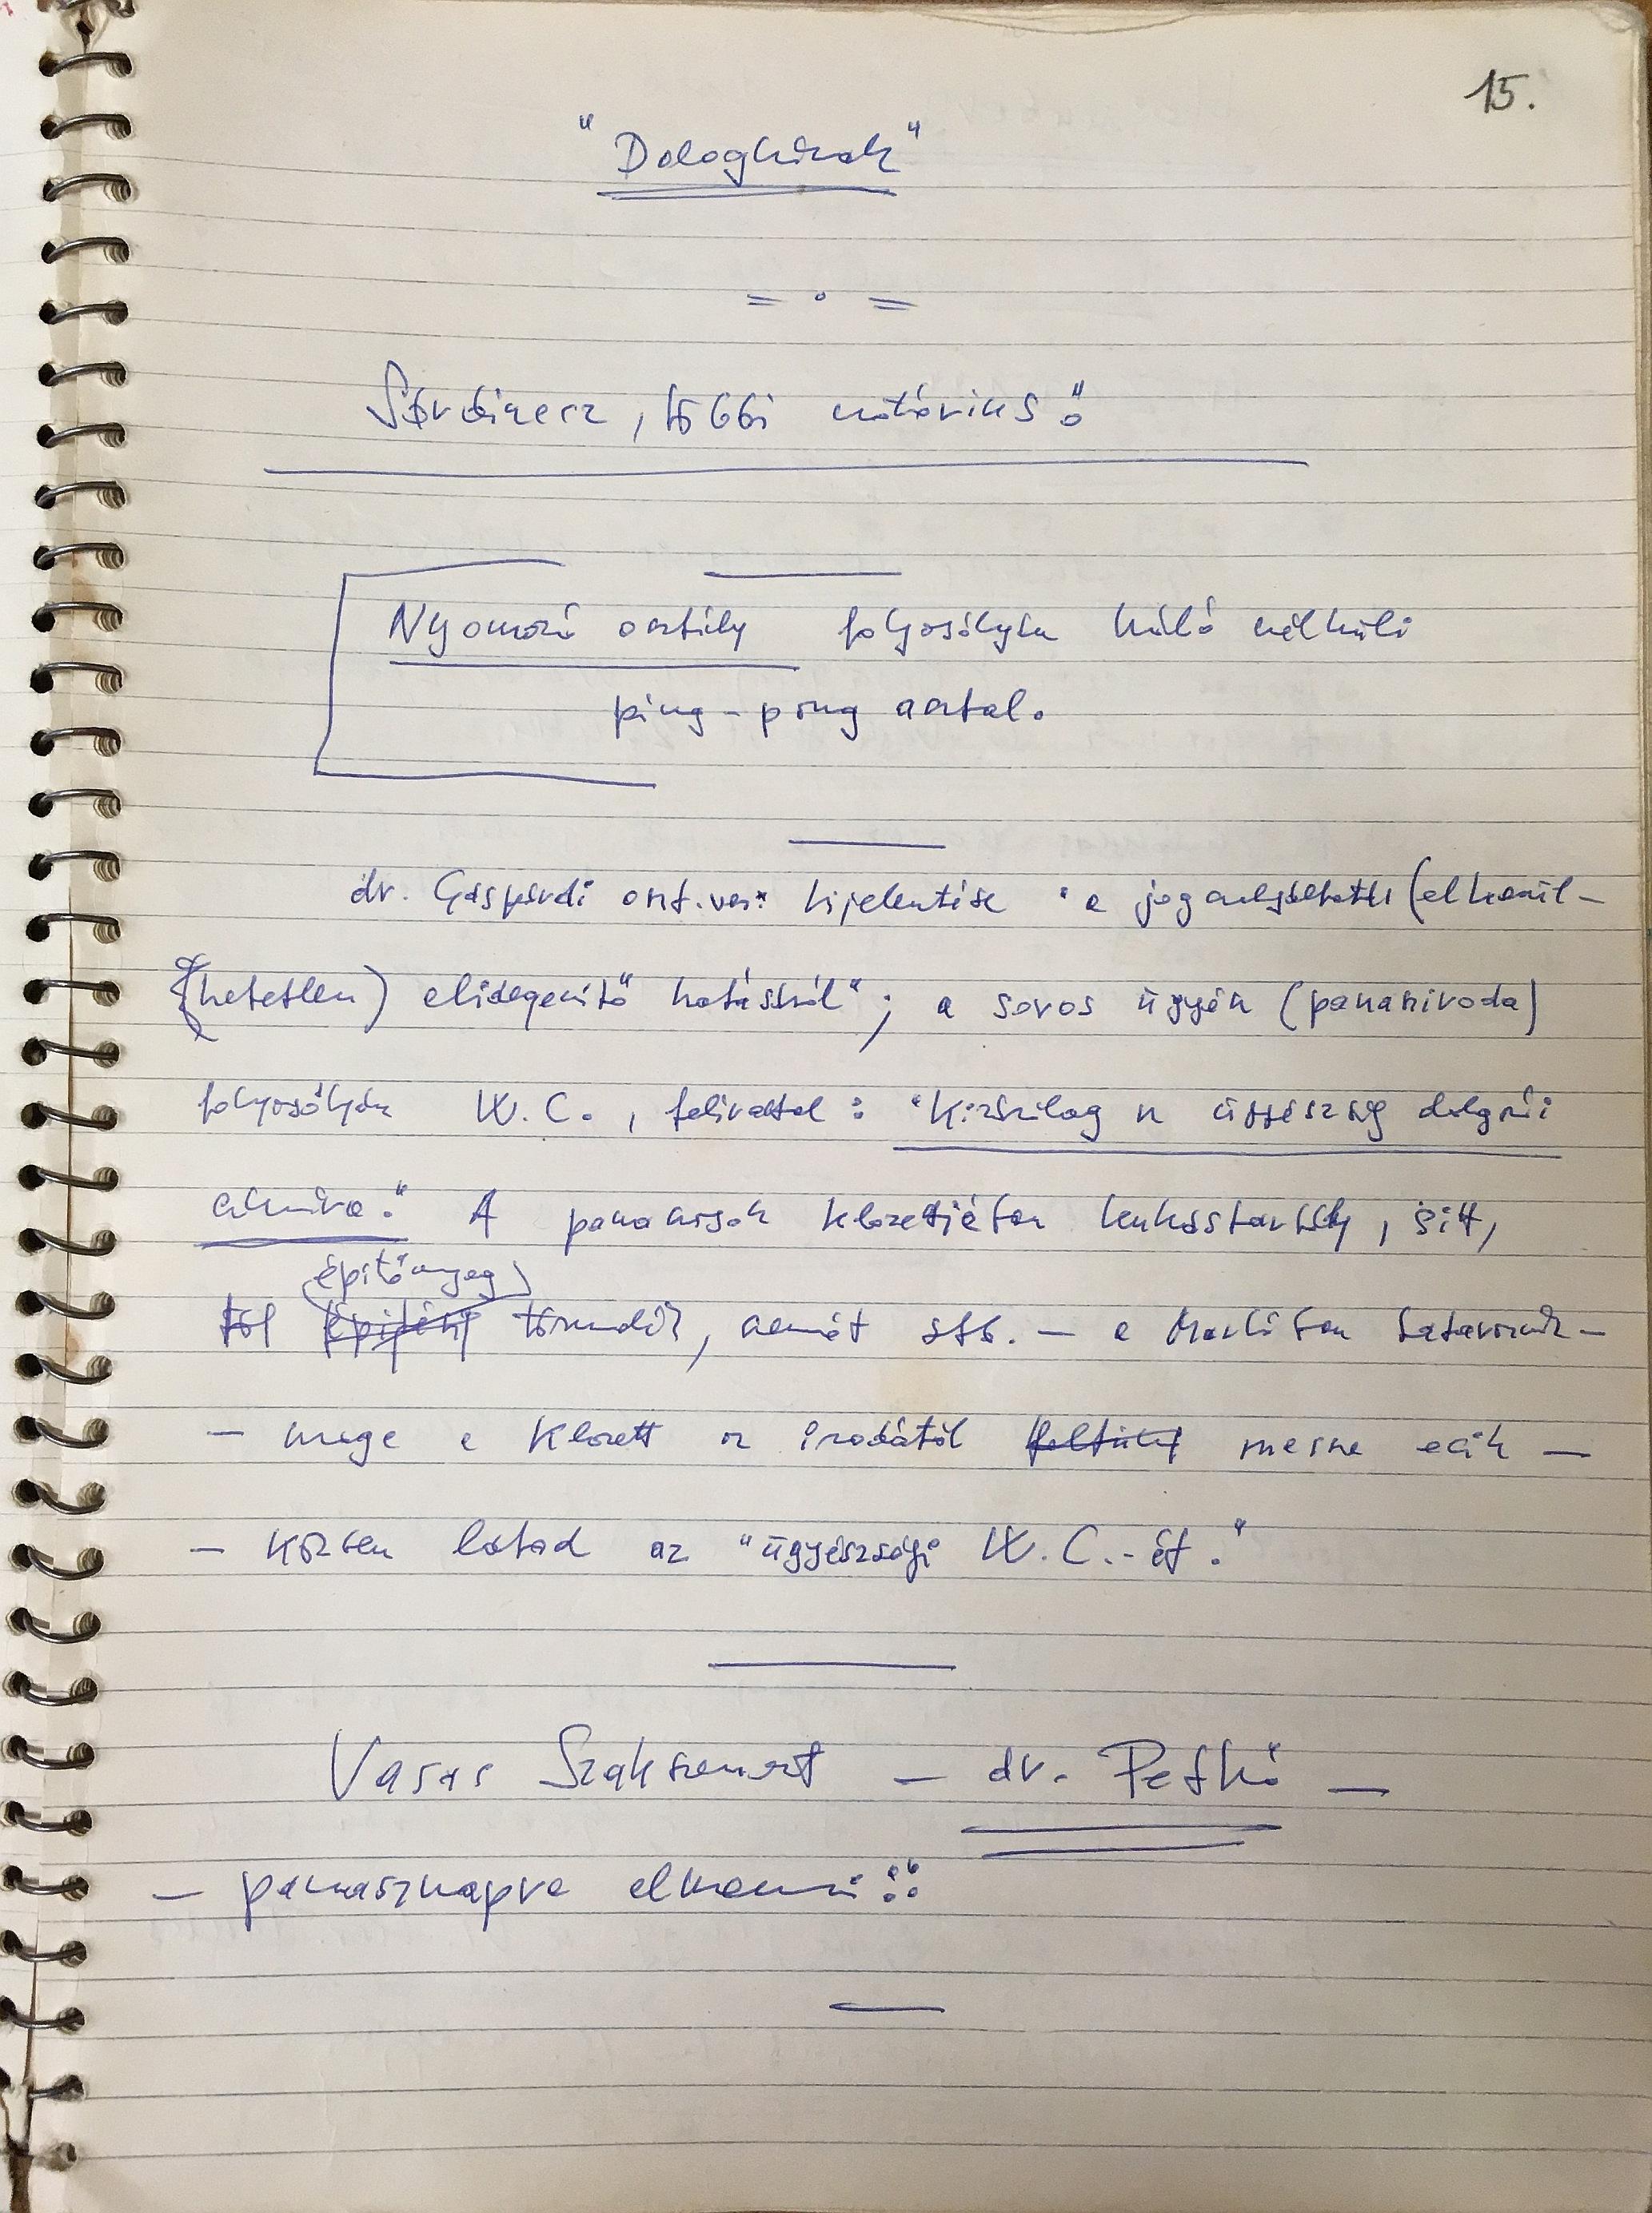 15.
"Dologházak"
= ° =
többi notórius"
Nyomozó osztály folyosóján háló nélküli
ping-pong asztal.
dr. Gáspárdi oszt.vez. kijelentése "a jogszolgáltatás (elkerül-
(hetetlen) elidegenítő hatásáról"; a soros ügyén (panasziroda)
folyosóján W.C., felirattal: "Kizárólag az ügyészség dolgozói
számára." A panaszosok klozetjében lukasztartály, sitt,
föl (építőanyag) törmelék, szemét stb. –
– maga a klozett az irodától messze esik –
– közben látod az "ügyészségi W.C.-ét."
Vasas Szakszervezet – dr. Petkó –
– panasznapra elmenni!!